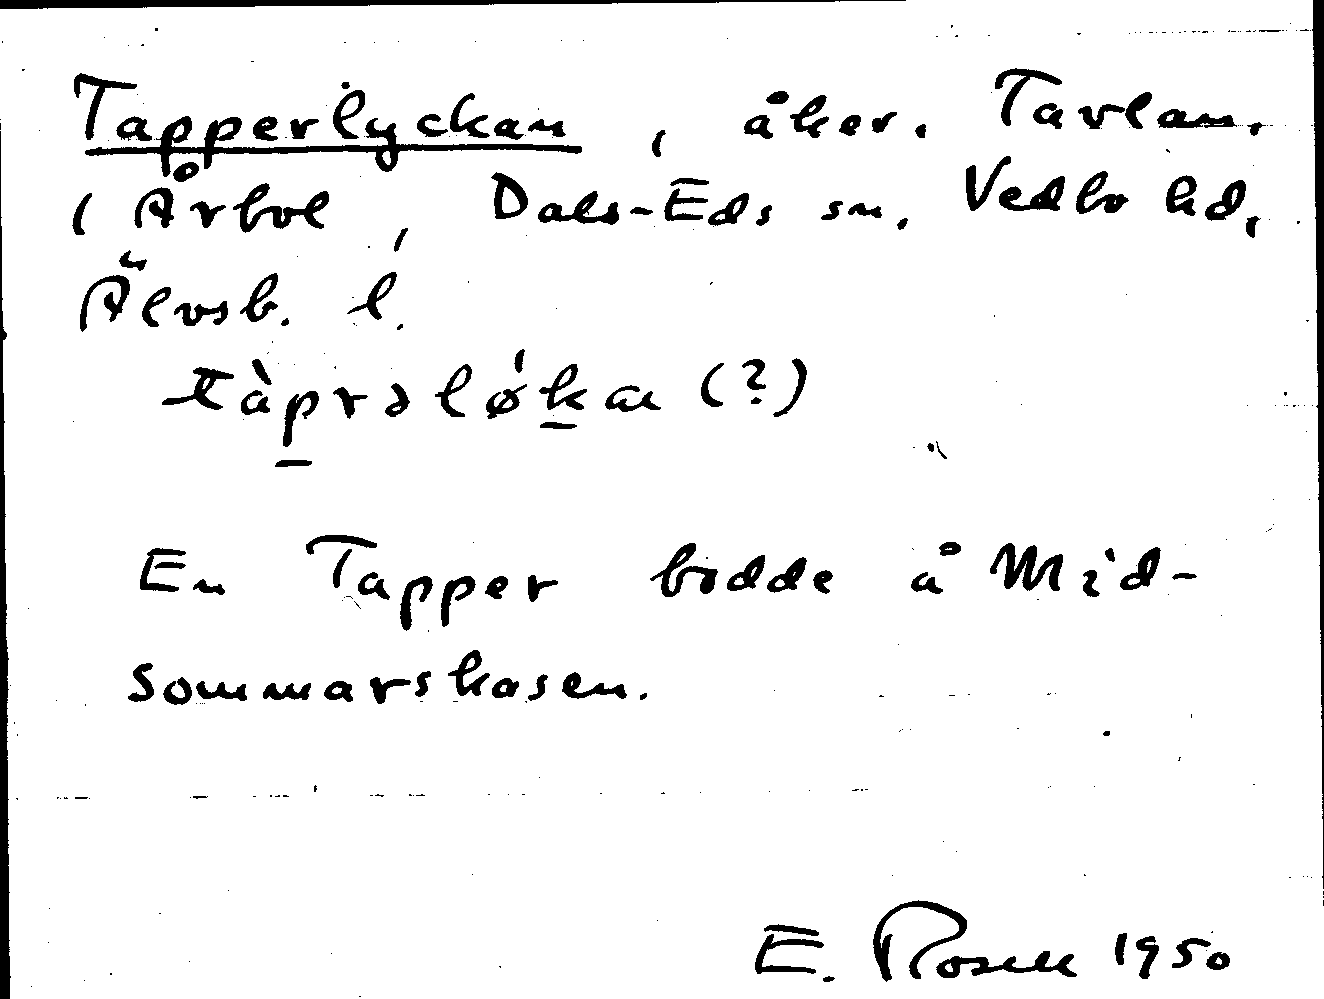 Tapperlyckan, åker. Tavlan.
(Årbol, Dals-Eds sn. Vedbo hd,
Älvsb. l.
tàprəløkan (?)
En Tapper bodde å Mid-
sommarskasen.
E. Rosell 1950